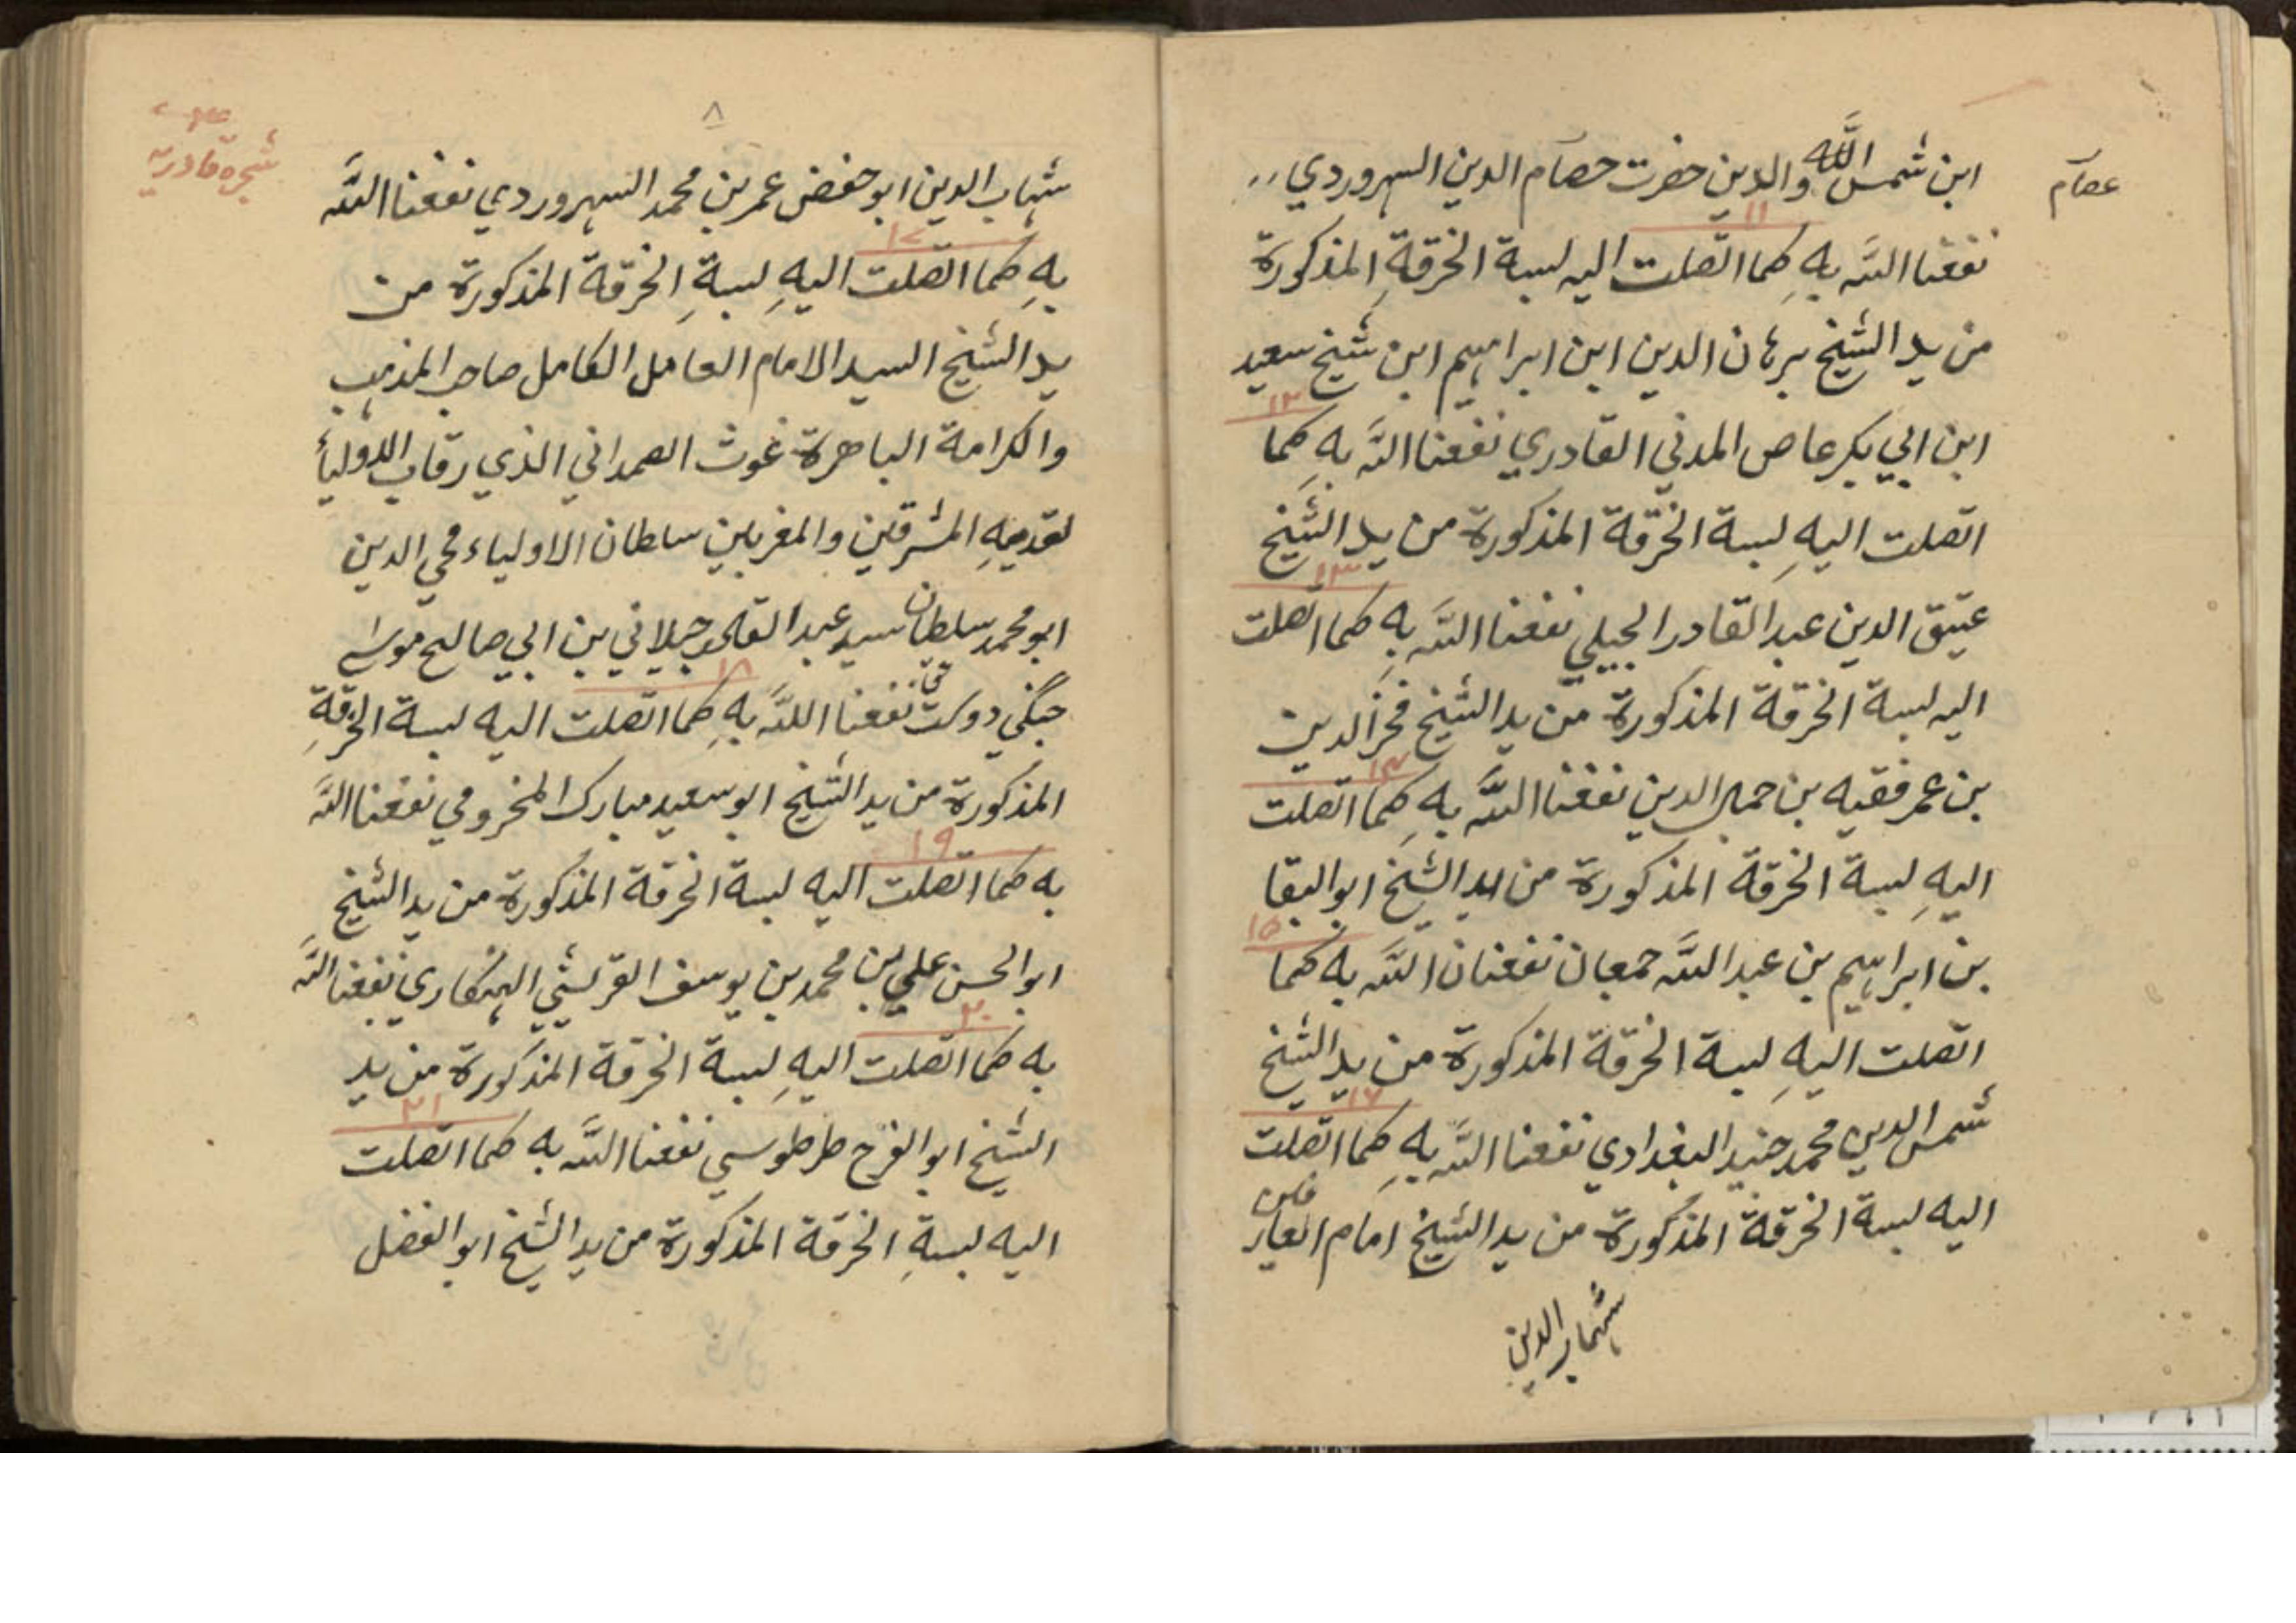 عصام
ابن شمس الله والدين حضرت حصام الدين السهروردي
١١
نفعنا الله به كما اتصلت اليه لبسة الخرقة المذكورة
من يد الشيخ برهان الدين ابن ابراهيم ابن شيخ سعيد
١٢
ابن ابي بكر عاص المدني القادري نفعنا الله به كما
اتصلت اليه لبسة الخرقة المذكورة من يد الشيخ
١٣
عتيق الدين عبد القادر الجيلي نفعنا الله به كما اتصلت
اليه لبسة الخرقة المذكورة من يد الشيخ فخر الدين
١٤
بن عمر فقيه بن جمال الدين نفعنا الله به كما اتصلت
اليه لبسة الخرقة المذكورة من يد الشيخ ابو البقا
١٥
بن ابراهيم بن عبد الله جمعان نفعنان الله به كما
اتصلت اليه لبسة الخرقة المذكورة من يد الشيخ
١٦
شمس الدين محمد جنيد البغدادي نفعنا الله به كما اتصلت
اليه لبسة الخرقة المذكورة من يد الشيخ امام العارفين
شهاب الدين
٨
شجره قادريه
شهاب الدين ابو حفض عمر بن محمد السهروردي نفعنا الله
١٧
به كما اتصلت اليه لبسة الخرقة المذكورة من
يد الشيخ السيد الامام العامل الكامل صاحب المذهب
والكرامة الباهرة غوث الصمداني الذي رقاب الاولياء
لقدميه المشرقين والمغربين سلطان الاولياء محي الدين
ابو محمد سلطان سيد عبد القادر جيلاني بن ابي صالح موسى
١٨
جنگي دوست نفعنا الله به كما اتصلت اليه لبسة الخرقة
المذكورة من يد الشيخ ابو سعيد مبارك المخرومي نفعنا الله
١٩
به كما اتصلت اليه لبسة الخرقة المذكورة من يد الشيخ
ابو الحسن علي بن محمد بن يوسف القريشي الهنكاري نفعنا الله
٢٠
به كما اتصلت اليه لبسة الخرقة المذكورة من يد
٢١
الشيخ ابو الفرح طرطوسي نفعنا الله به كما اتصلت
اليه لبسة الخرقة المذكورة من يد الشيخ ابو الفضل